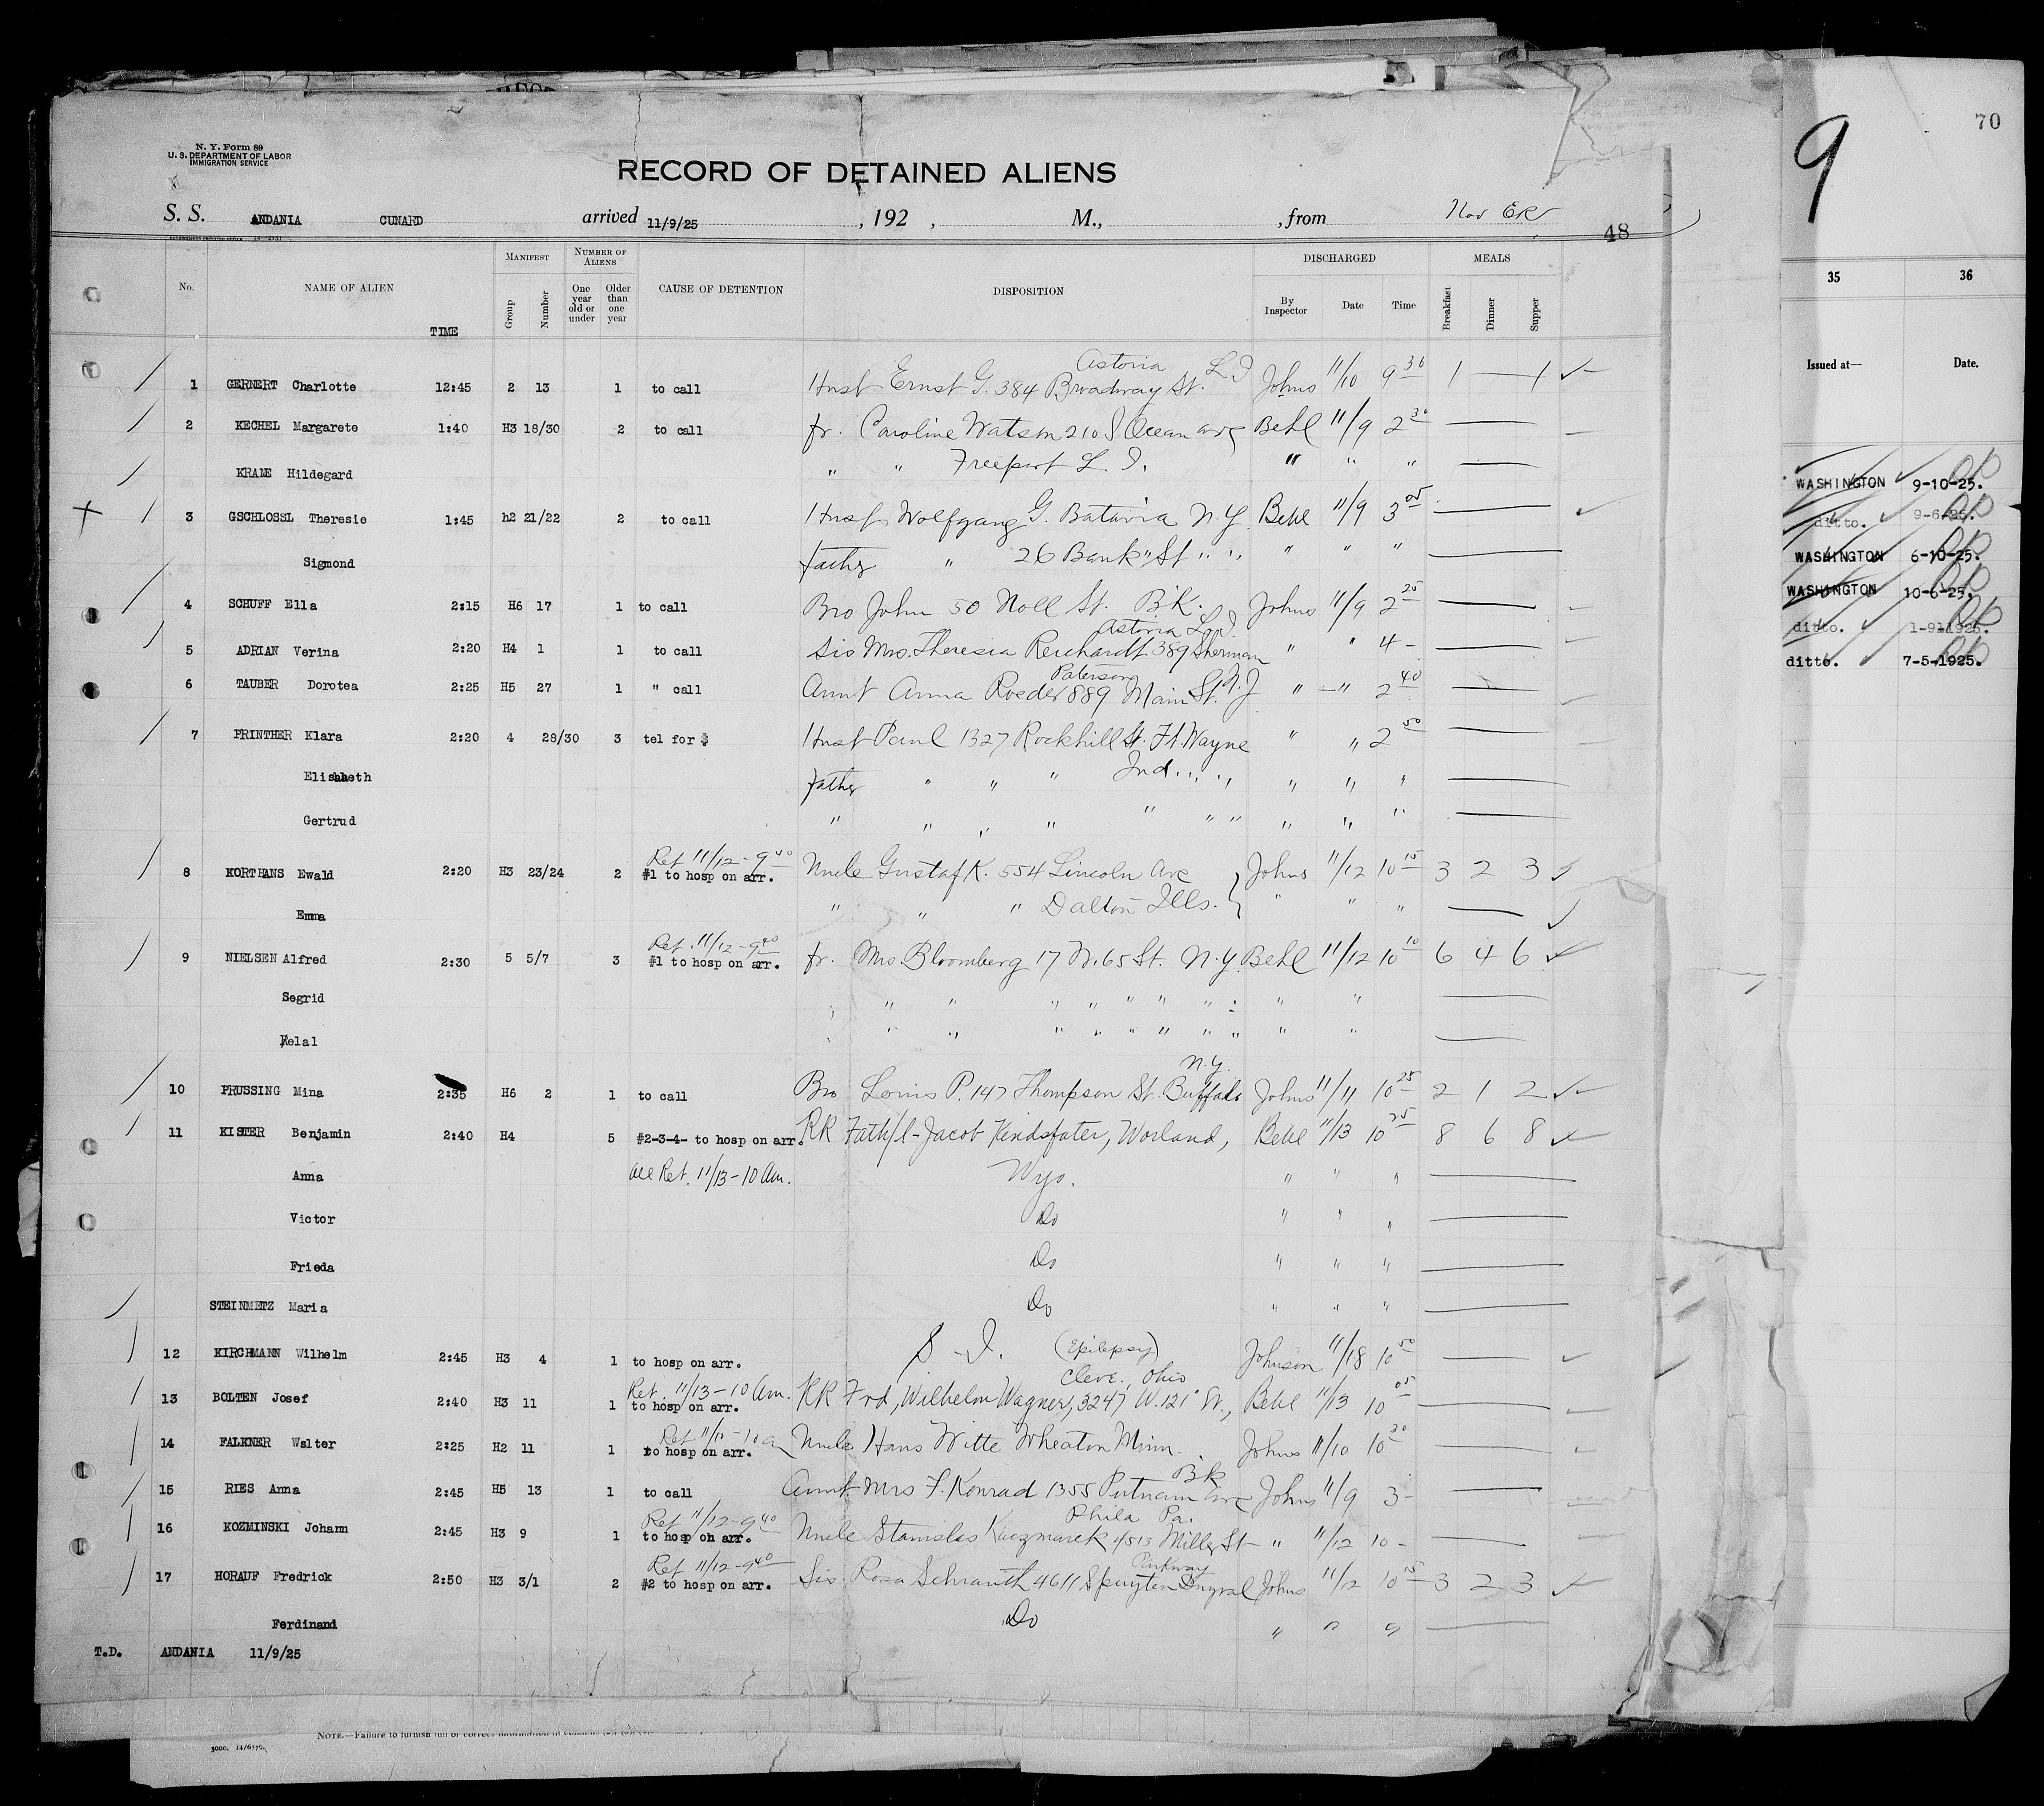 N. Y. Form 89
U. S. DEPARTMENT OF LABOR
IMMIGRATION SERVICE
RECORD OF DETAINED ALIENS
S. S. ANDANIA CUNARD arrived 11/9/25 , 192 , M., , from
48
No. NAME OF ALIEN TIME MANIFEST Group Number NUMBER OF ALIENS One year old or under Older than one year CAUSE OF DETENTION DISPOSITION DISCHARGED By Inspector Date Time MEALS Breakfast Dinner Supper
Astoria L.I
1 GERNERT Charlotte 12:45 2 13 1 to call Husb Ernst G. 384 Broadway St. Johns 11/10 9 30 1 — 1
2 KECHEL Margarete 1:40 H3 18/30 2 to call fr. Caroline Watson 210 S Ocean ave Behl 11/9 2 30
KRAME Hildegard " " Freeport L. I. " " "
3 GSCHLOSSL Theresie 1:45 h2 21/22 2 to call Husb Wolfgang G. Batavia N.Y Behl 11/9 3 05
Sigmond father " 26 Bank St " " " " "
4 SCHUFF Ella 2:15 H6 17 1 to call Bro John 50 Noll St. BK. Johns 11/9 2 25
Astoria L.I.
5 ADRIAN Verina 2:20 H4 1 1 to call Sis Mrs. Theresia Reichardt 389 Sherman " " 4 -
Paterson
6 TAUBER Dorotea 2:25 H5 27 1 " call Aunt Anna Roeder 889 Main St. N.J " " 2 40
7 PRINTHER Klara 2:20 4 28/30 3 tel for $ Husb Paul 1327 Rockhill St. Ft. Wayne " " 2 50
Elisabeth father " " " Ind. " " " " "
Gertrud " " " " " " " " " "
Ret 11/12 - 9 40
8 KORTHANS Ewald 2:20 H3 23/24 2 #1 to hosp on arr. Uncle Gustaf K. 554 Lincoln Ave Johns 11/12 10 15 3 2 3
Emma " " " Dalton Ills. " " "
Ret. 11/12 - 9 40
9 NIELSEN Alfred 2:30 5 5/7 3 #1 to hosp on arr. fr. Mrs. Bloomberg 17 W. 65 St. N.Y. Behl 11/12 10 10 6 4 6
Segrid " " " " " " " " " "
Helal " " " " " " " " " "
N.Y.
10 PRUSSING Mina 2:35 H6 2 1 to call Bro Louis P. 147 Thompson St. Buffalo Johns 11/11 10 25 2 1 2
11 KISTER Benjamin 2:40 H4 5 #2-3-4- to hosp on arr. RR Fath/l - Jacob Kindsfater, Worland, Behl 11/13 10 25 8 6 8
Anna all Ret. 11/13 - 10 Am. Wyo. " " "
Victor Do " " "
Frieda Do " " "
STEINMETZ Maria Do " " "
12 KIRCHMANN Wilhelm 2:45 H3 4 1 to hosp on arr. S - I. (Epilepsy) Johnson 11/18 10 50
Ret. 11/13 - 10 Am. Cleve., Ohio
13 BOLTEN Josef 2:40 H3 11 1 to hosp on arr. RR Frd, Wilhelm Wagner, 3247 W. 121 St., Behl 11/13 10 05
Ret 11/10 - 10 a
14 FALKNER Walter 2:25 H2 11 1 to hosp on arr. Uncle Hans Witte Wheaton Minn. Johns 11/10 10 30
BK
15 RIES Anna 2:45 H5 13 1 to call Aunt Mrs F. Konrad 1355 Putnam Ave Johns 11/9 3 -
Ret 11/12 - 9 40 Phila Pa.
16 KOZMINSKI Johann 2:45 H3 9 1 to hosp on arr. Uncle Stanislas Kaczmarek 4513 Miller St " 11/12 10 -
Ret 11/12 - 9 40 Parkway
17 HORAUF Fredrick 2:50 H3 3/1 2 #2 to hosp on arr. Sis Rosa Schranth 4611 Spuyten Duyval Johns 11/12 10 15 3 2 3
Ferdinand Do " " "
T.D. ANDANIA 11/9/25
NOTE.—Failure to furnish full or correct information
3000. 14/6579.
9 70
35 36
Issued at— Date.
WASHINGTON 9-10-25.
ditto. 9-6-25.
WASHINGTON 6-10-25.
WASHINGTON 10-6-25.
ditto. 1-9-1925.
ditto. 7-5-1925.